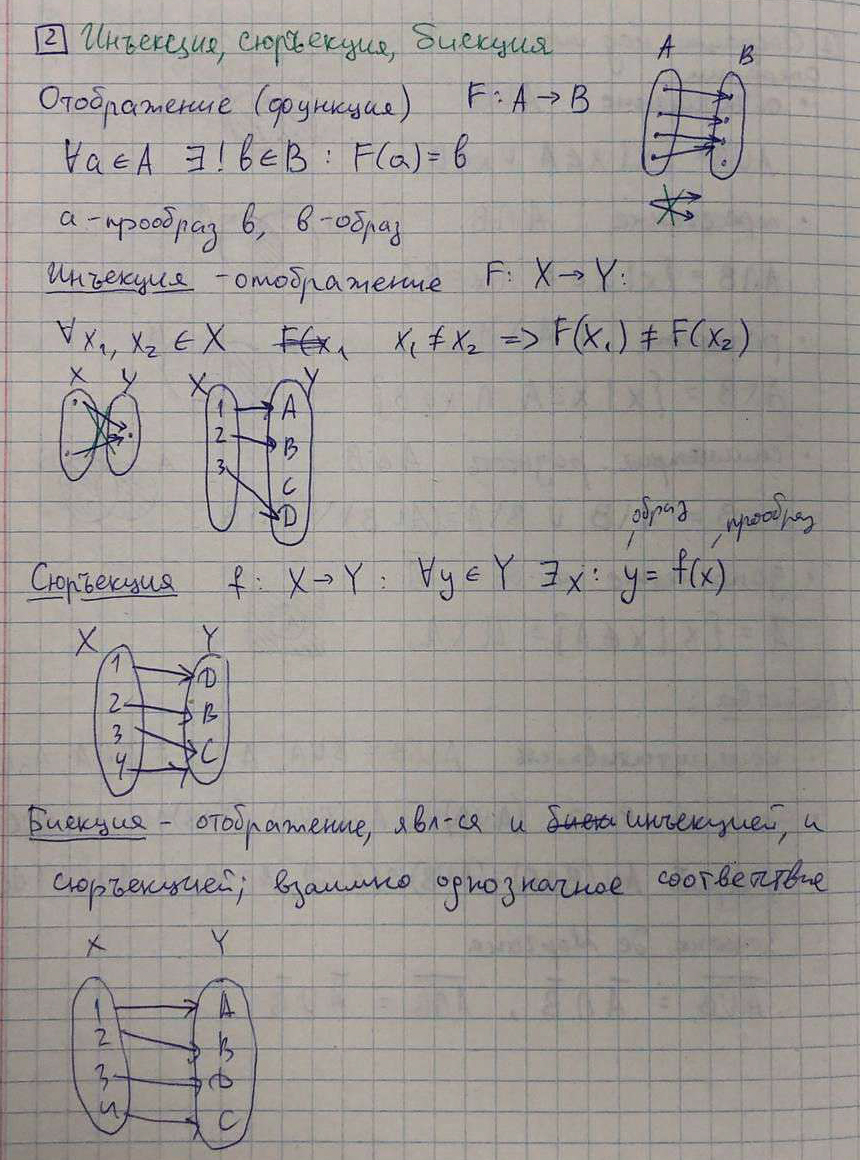 2 Инъекция, сюръекция, биекция
A B
Отображение (функция) F: A → B
∀a ∈ A ∃! b ∈ B : F(a) = b
a - прообраз b, b - образ
Инъекция - отображение F: X → Y:
∀ x₁, x₂ ∈ X F(x₁ x₁ ≠ x₂ => F(x₁) ≠ F(x₂)
X Y X Y
1 A
2 B
3 C
D
образ прообраз
Сюръекция f: X → Y : ∀y ∈ Y ∃x : y = f(x)
X Y
1 D
2 B
3 C
4
Биекция - отображение, явл-ся и биек инъекцией, и
сюръекцией; взаимно однозначное соответствие
X Y
1 A
2 B
3 D
4 C